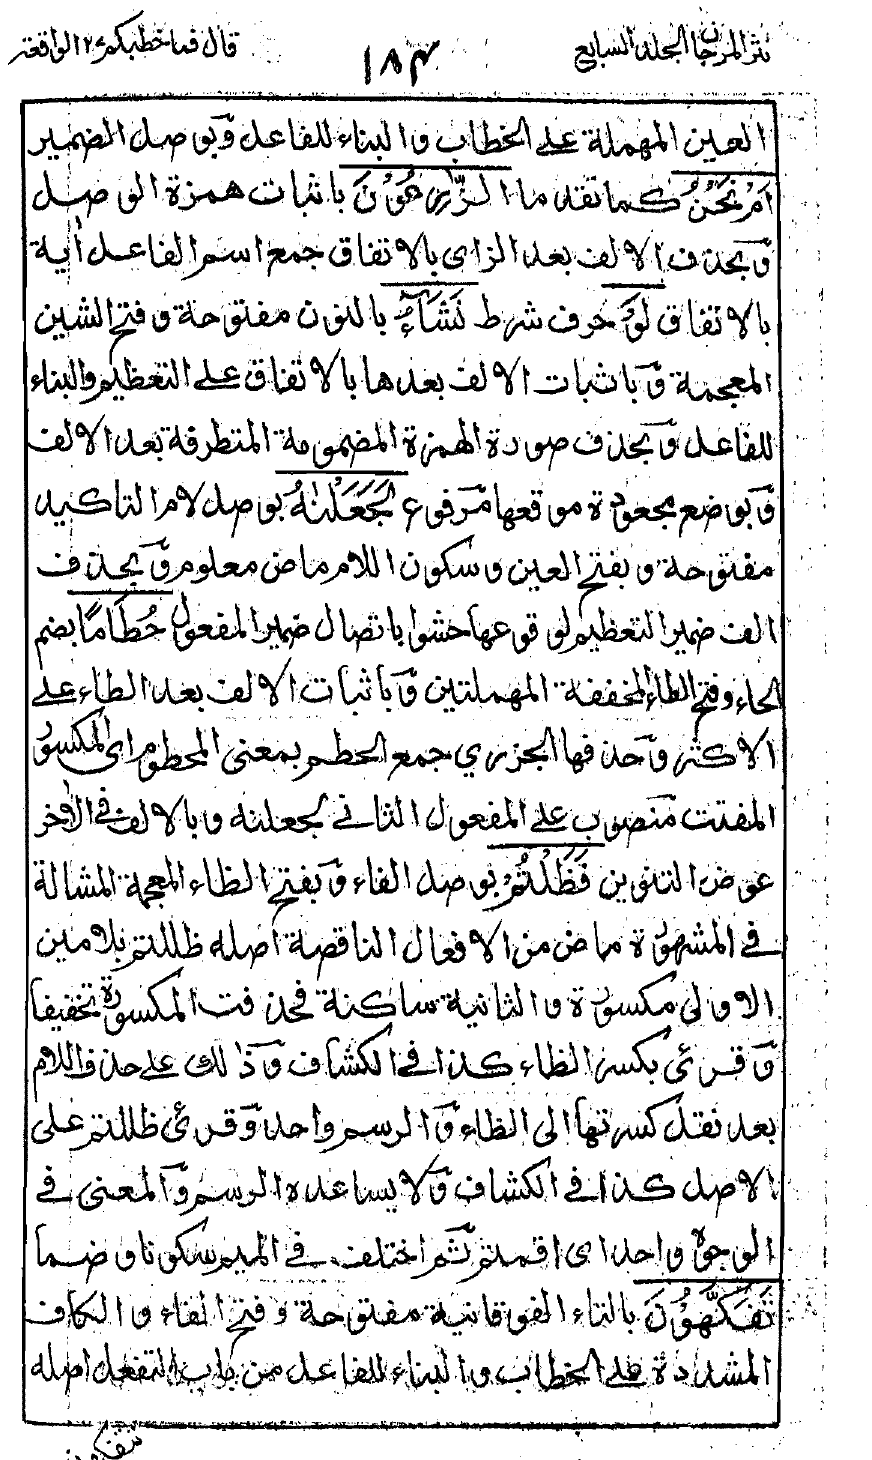 نثر المرجان الجلد السابع
١٨٣
قال فما خطبكم ٢٧ الواقعة
العين المهملة على الخطاب والبناء للفاعل وبوصل الضمير
اَمْ نَحْنُ كما تقدم الزّٰرِعُوْنَ باثبات همزة الوصل
وبحذف الالف بعد الزاى بالاتفاق جمع اسم الفاعل أية
بالاتفاق لَوْ حرف شرط نَشَآءُ بالنون مفتوحة وفتح الشين
المعجمة وباثبات الالف بعدها بالاتفاق على التعظيم والبناء
للفاعل وبحذف صورة الهمزة المضمومة المتطرفة بعد الالف
وبوضع مجعودة موقعها مرفوع لَجَعَلْنٰهُ بوصل لام التاكيد
مفتوحة وبفتح العين وسكون اللام ماض معلوم وبحذف
الف ضمير التعظيم لوقوعها حشوا باتصال ضمير المفعول حُطَامًا بضم
الحاء وفتح الطاء المخففة المهملتين وباثبات الالف بعد الطاء على
الاكثر وحذفها الجزري جمع الحطم بمعنى المحطوم اى المكسور
المفتت منصوب على المفعول الثانى لجعلنه وبالالف فى الاٰخر
عوض التنوين فَظَلْتُمْ بوصل الفاء وبفتح الظاء المعجمة المشالة
فى المشهورة ماض من الافعال الناقصة اصله ظللتم بلامين
الاولى مكسورة والثانية ساكنة فحذفت المكسورة تخفيفا
وقرئ بكسر الظاء كذا فى الكشاف وذٰلك على حذف اللام
بعد نقل كسرتها الى الظاء والرسم واحد وقرئ ظللتم على
الاصل كذا فى الكشاف ولا يساعده الرسم والمعنى فى
الوجوه واحد اى اقمتم ثم اختلف فى الميم سكونا وضما
تَفَكَّهُوْنَ بالتاء الفوقانية مفتوحة وفتح الفاء والكاف
المشددة على الخطاب والبناء للفاعل من باب التفعل اصله